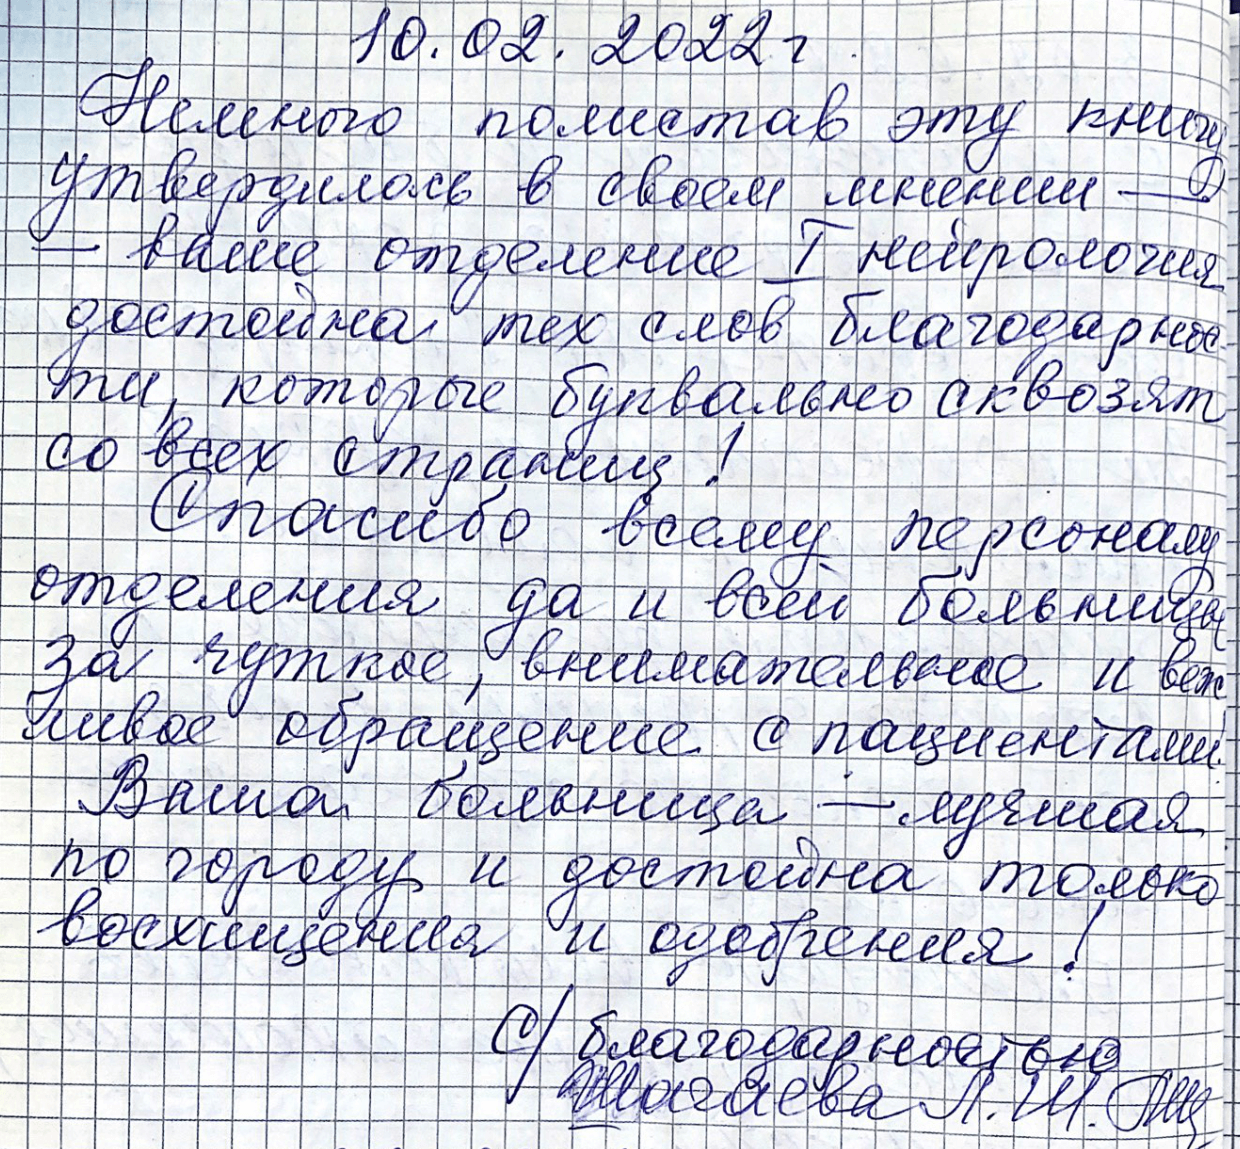 10.02.2022 г
Немного полистав эту книгу
утвердилась в своем мнении —
— ваше отделение I нейрология
достойна тех слов благодарнос
ти, которые буквально сквозят
со всех страниц!
Спасибо всему персоналу
отделения да и всей больницы
за чуткое, внимательное и веж
ливое обращение с пациентами.
Ваша больница — лучшая
по городу и достойна только
восхищения и одобрения!
С/ благодарностью
Л.Ш.